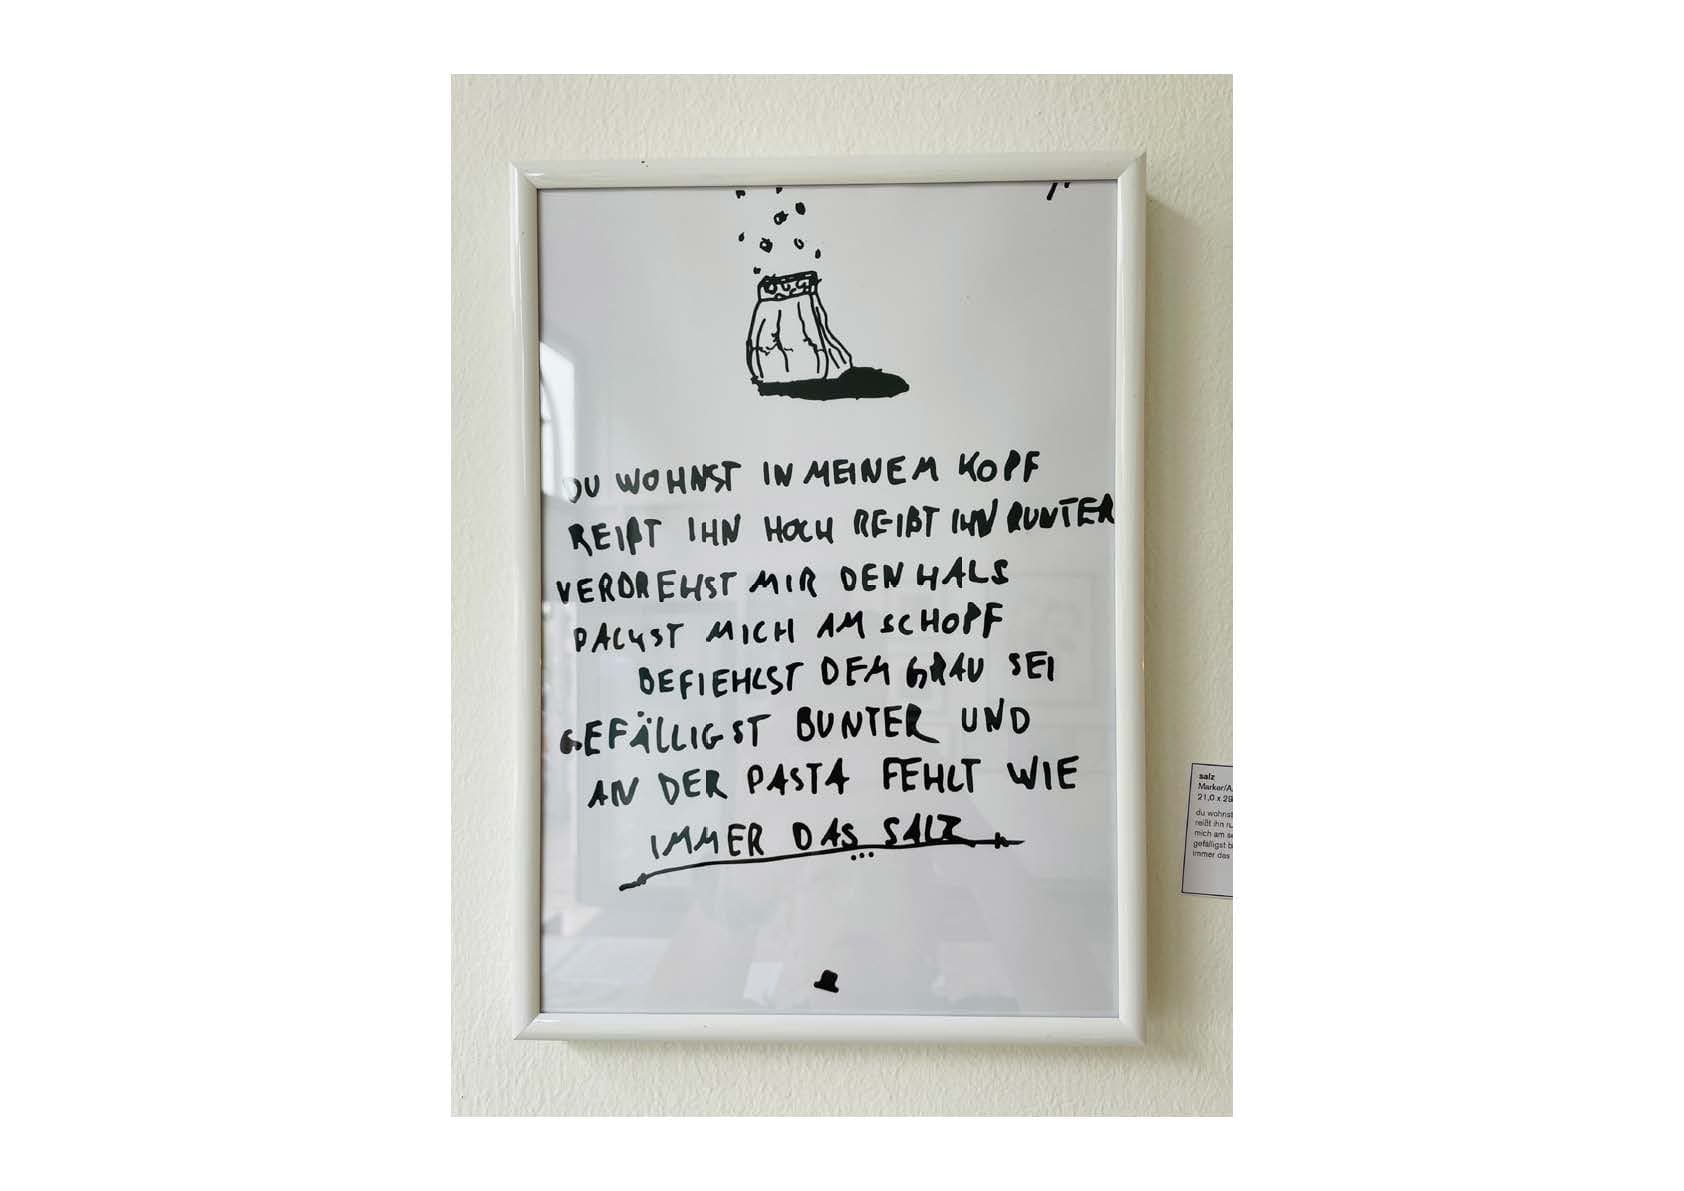 DU WOHNST IN MEINEM KOPF
REIßT IHN HOCH REIßT IHN RUNTER
VERDREHST MIR DEN HALS
PACKST MICH AM SCHOPF
BEFIEHLST DEM GRAU SEI
GEFÄLLIGST BUNTER UND
AN DER PASTA FEHLT WIE
IMMER DAS SALZ
...
salz
Marker/A
21,0 x 29
du wohnst
reißt ihn ru
mich am s
gefälligst b
immer das